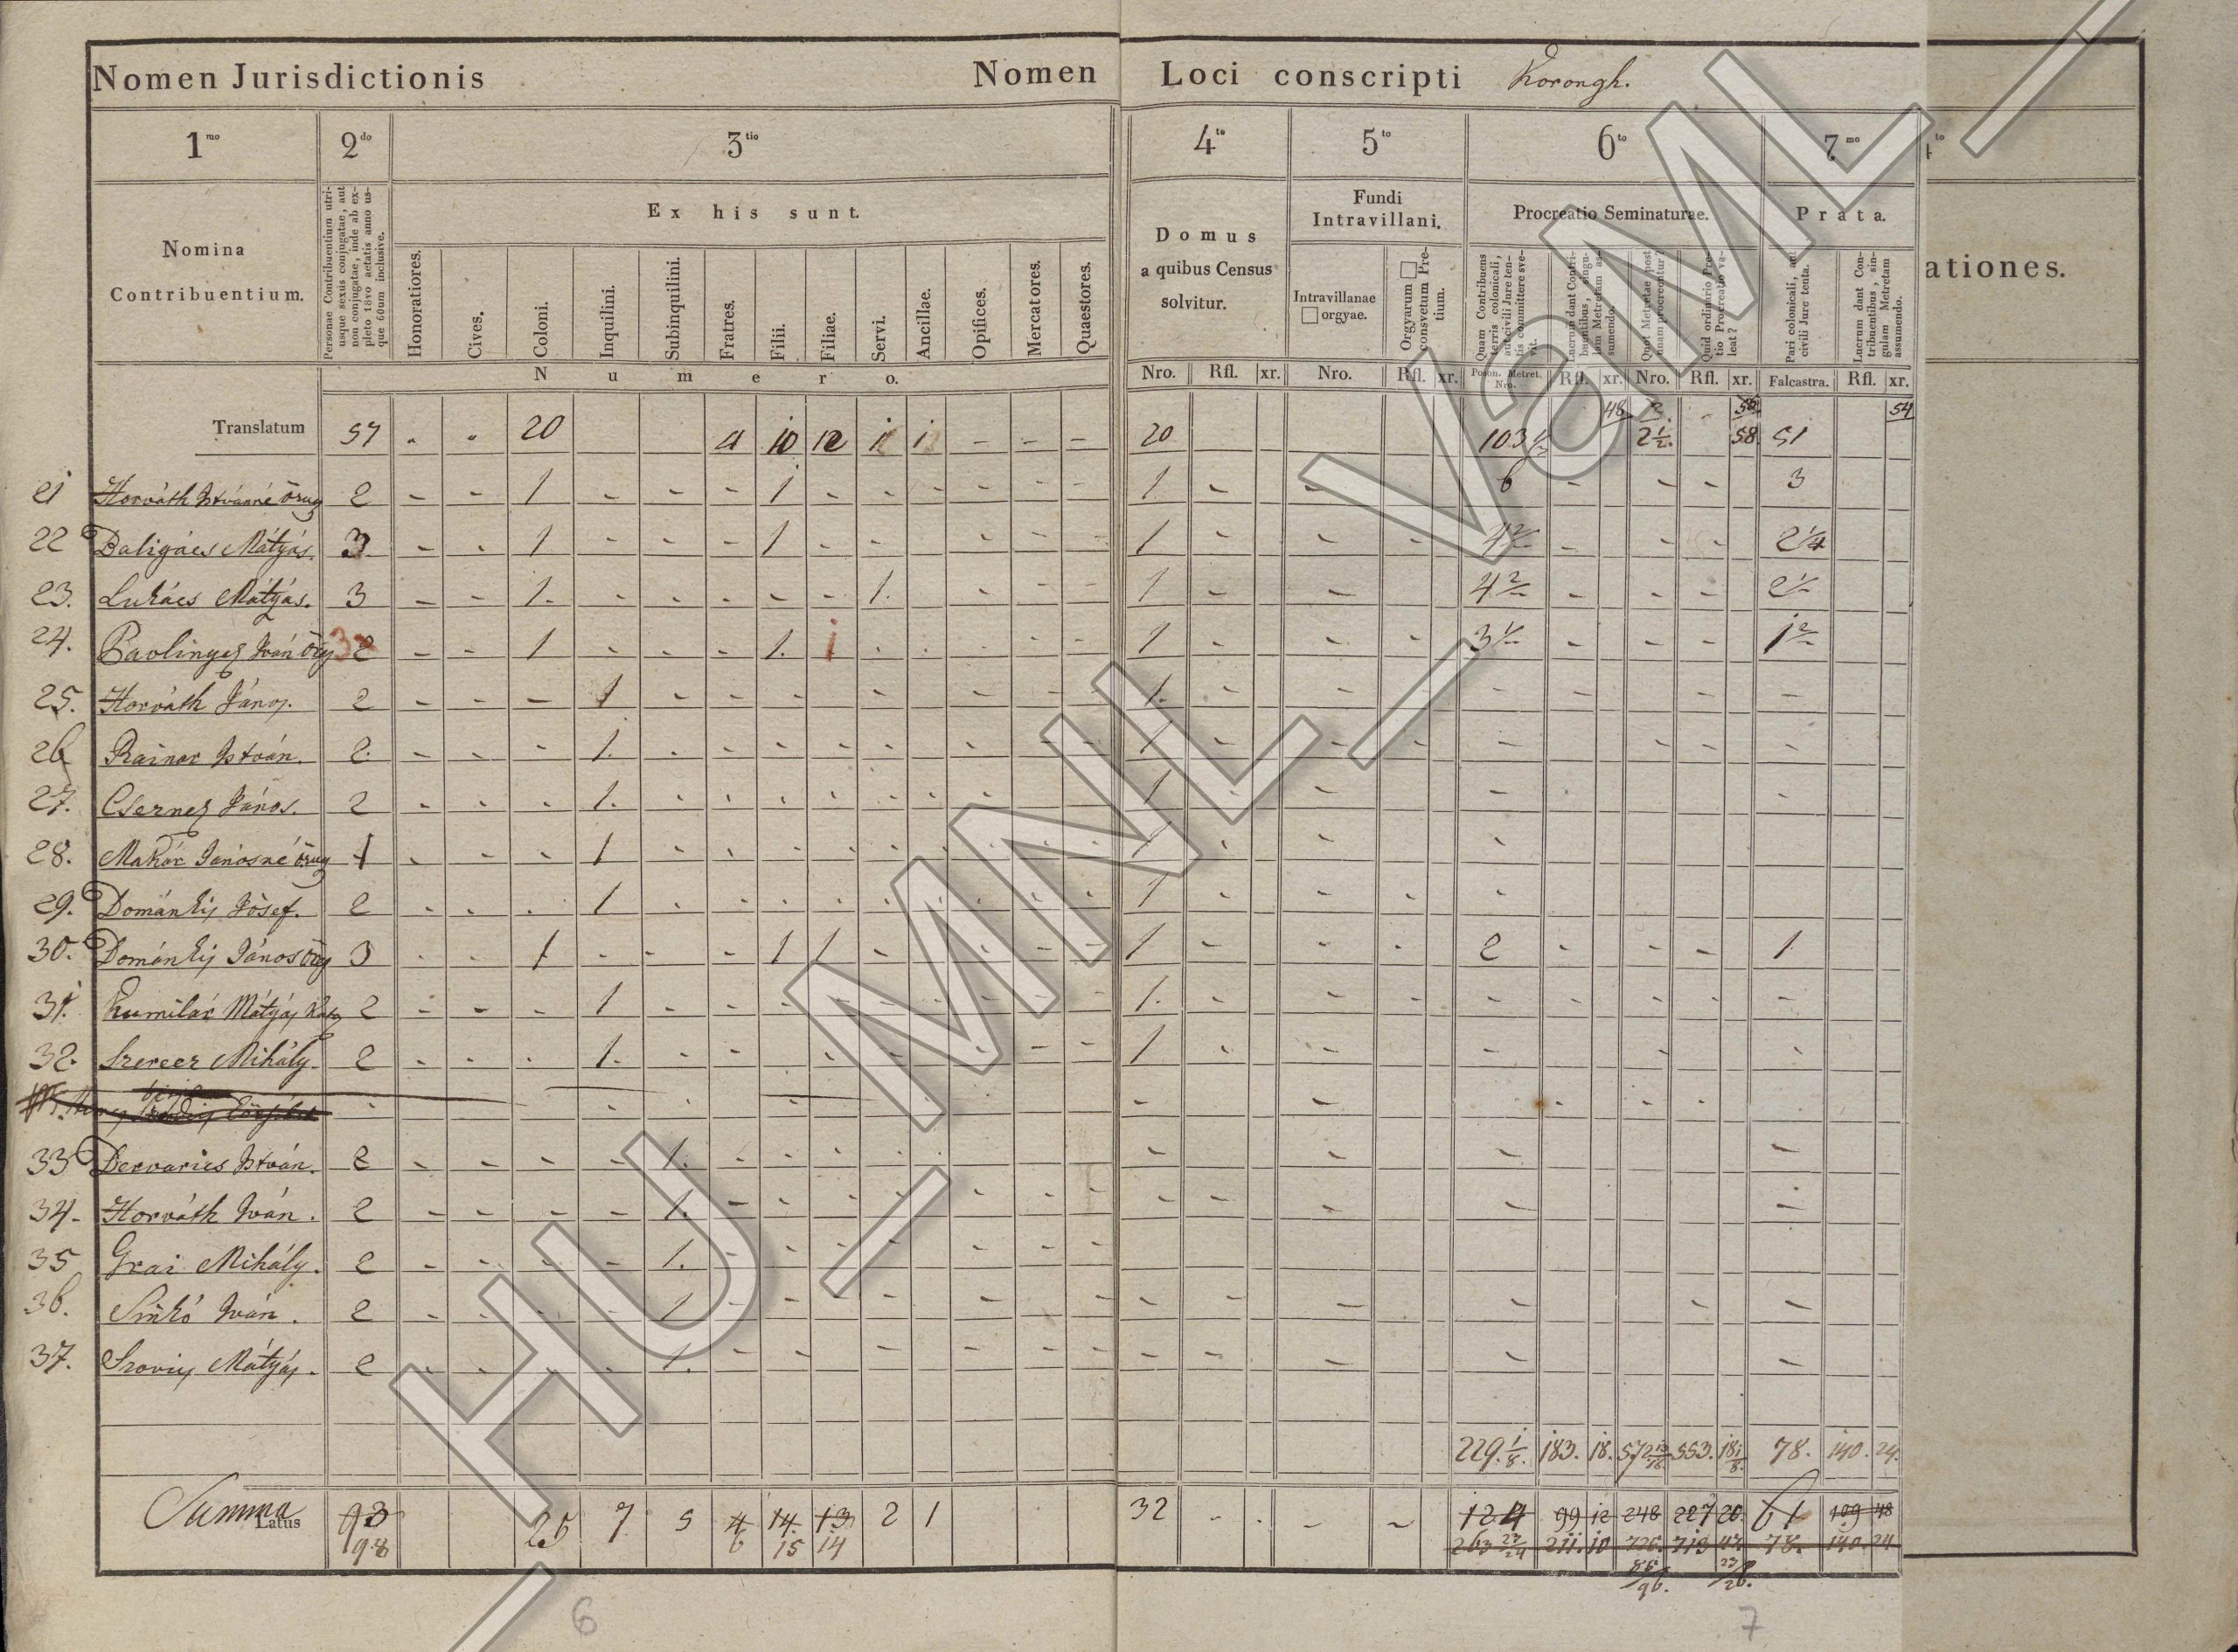 Nomen Jurisdictionis Nomen Loci conscripti Korongh.
1mo 2do 3tio 4to 5to 6to 7mo to
Nomina Contribuentium.
Personae Contribuentium utriusque sexûs conjugatae, aut non conjugatae, inde ab expleto 18vo aetatis anno usque 60um inclusive.
Ex his sunt.
Honoratiores. Cives. Coloni. Inquilini. Subinquilini. Fratres. Filii. Filiae. Servi. Ancillae. Opifices. Mercatores. Quaestores.
Domus a quibus Census solvitur.
Fundi Intravillani.
Intravillanae □ orgyae.
Orgyarum □ consvetum Pretium.
Procreatio Seminaturae.
Quam Contribuens terris colonicali, aut civili Jure tentis committere svevit.
Lucrum dant Contribuentibus, singulam Metretam assumendo.
Quot Metretae post unam procreentur?
Quid ordinario Pretio Procreatio valeat?
Prata.
Pari colonicali, aut civili Jure tenta.
Lucrum dant Contribuentibus, singulam Metretam assumendo.
ationes.
Numero.
Nro. Rfl. xr. Nro. Rfl. xr. Poson. Metret. Nro. Rfl. xr. Nro. Rfl. xr. Falcastra. Rfl. xr.
48 58 54
Translatum 57 20 4 10 12 1 1 - - - 20 103 2 1/2. 58 51
21 Horváth Istvánné 2 - - 1 - - - 1 - - - - - - 1 - - 6 - - - 3
22 Daligács Mátyás. 3 - - 1 - - - 1 - - - - - 1 - - - - - - 2 1/4
23. Lukács Mátyás. 3 - - 1. - - - - - 1. - - - 1 - - 4 - - -
24. Iván 3 2 - - 1 - - - 1. 1 - - - - - 1 - - - 3 - - -
25. Horváth János. 2 - - - 1 - - - - - - - 1. - - - - - - -
26 Rainar István. 2. - - - 1. - - - - - - - - 1 - - - - - - -
27. Csernez János. 2 - - - 1. - - - - - - - - 1 - - - -
28. Makár Jánosné 1 - - - 1 - - - - - - - - 1 - - -
29. Dománkij Jósef. 2 - - - 1 - - - - - - - - - 1 - - - -
30. Dománkij János 3 - - 1 - - - 1 1 - - - - 1 - - - 2 - - - 1.
31. Kumilár Mátyás 2 - - - 1 - - - - - - - - - 1. - - - - - - - -
32. Szercer Mihály. 2 - - - 1. - - - - - - - 1 - - - - -
33 Dervarics István. 2 - - - - 1. - - - - - - - -
34. Horváth Iván. 2 - - - - 1. - - - - - - - - - - - -
35 Grai Mihály. 2 - - - - 1. - - - - - - -
36. Sinkó Iván. 2 - - - - 1 - - - - - - - - - - - -
37. Mátyás. 2 - - - - 1. - - - - - - - - - - - -
229. 1/8. 183. 18. 572 553. 18 1/8. 78. 140. 24.
Summa Latus 93 25 7 5 4 14. 13 2 1 32 - - - - 124 99 12 248 227 20. 61 109 48
98 6 15 14 263 23/24 211. 10 726. 713 78. 140. 24
6 7
HU_MNL_VaML_